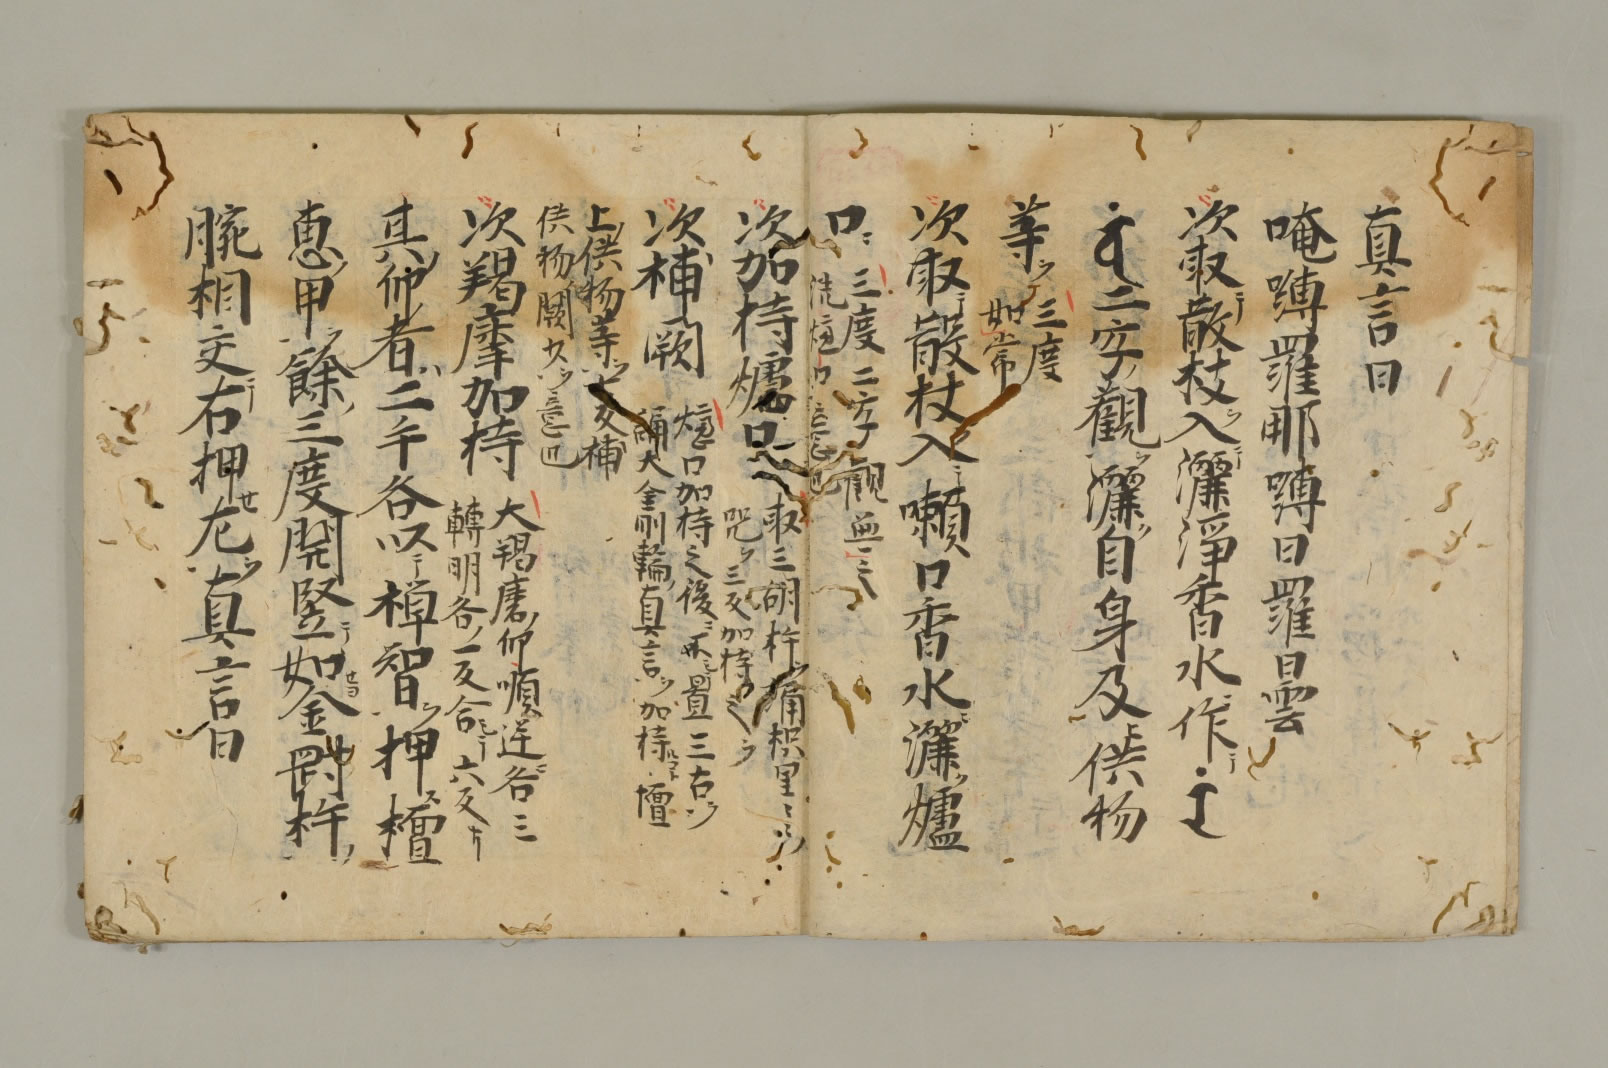 真言曰
唵嚩羅那嚩日羅日曇
次取散杖入灑淨香水作
二字觀灑自身及供物
等三度
如常
次取散杖入嗽口香水灑爐
口三度二字觀
洗爐口
次加持爐口取三鈷杵
咒三反加持
次補闕爐口加持之後置三古
大金剛輪真言加持壇
上供物等
供物闕
次羯摩加持大羯磨仰順逆各三
轉明各一反合六反
其仰者二手各以禪智押檀
惠甲餘三度開竪如金剛杵
腕相交右押左真言曰